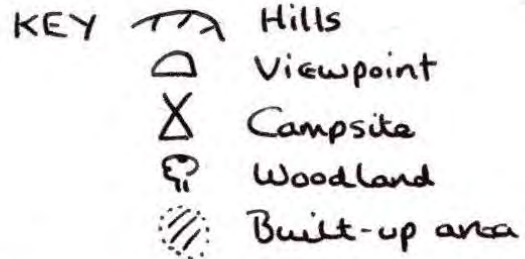 KEY Hills
Viewpoint
Campsite
Woodland
Built-up area